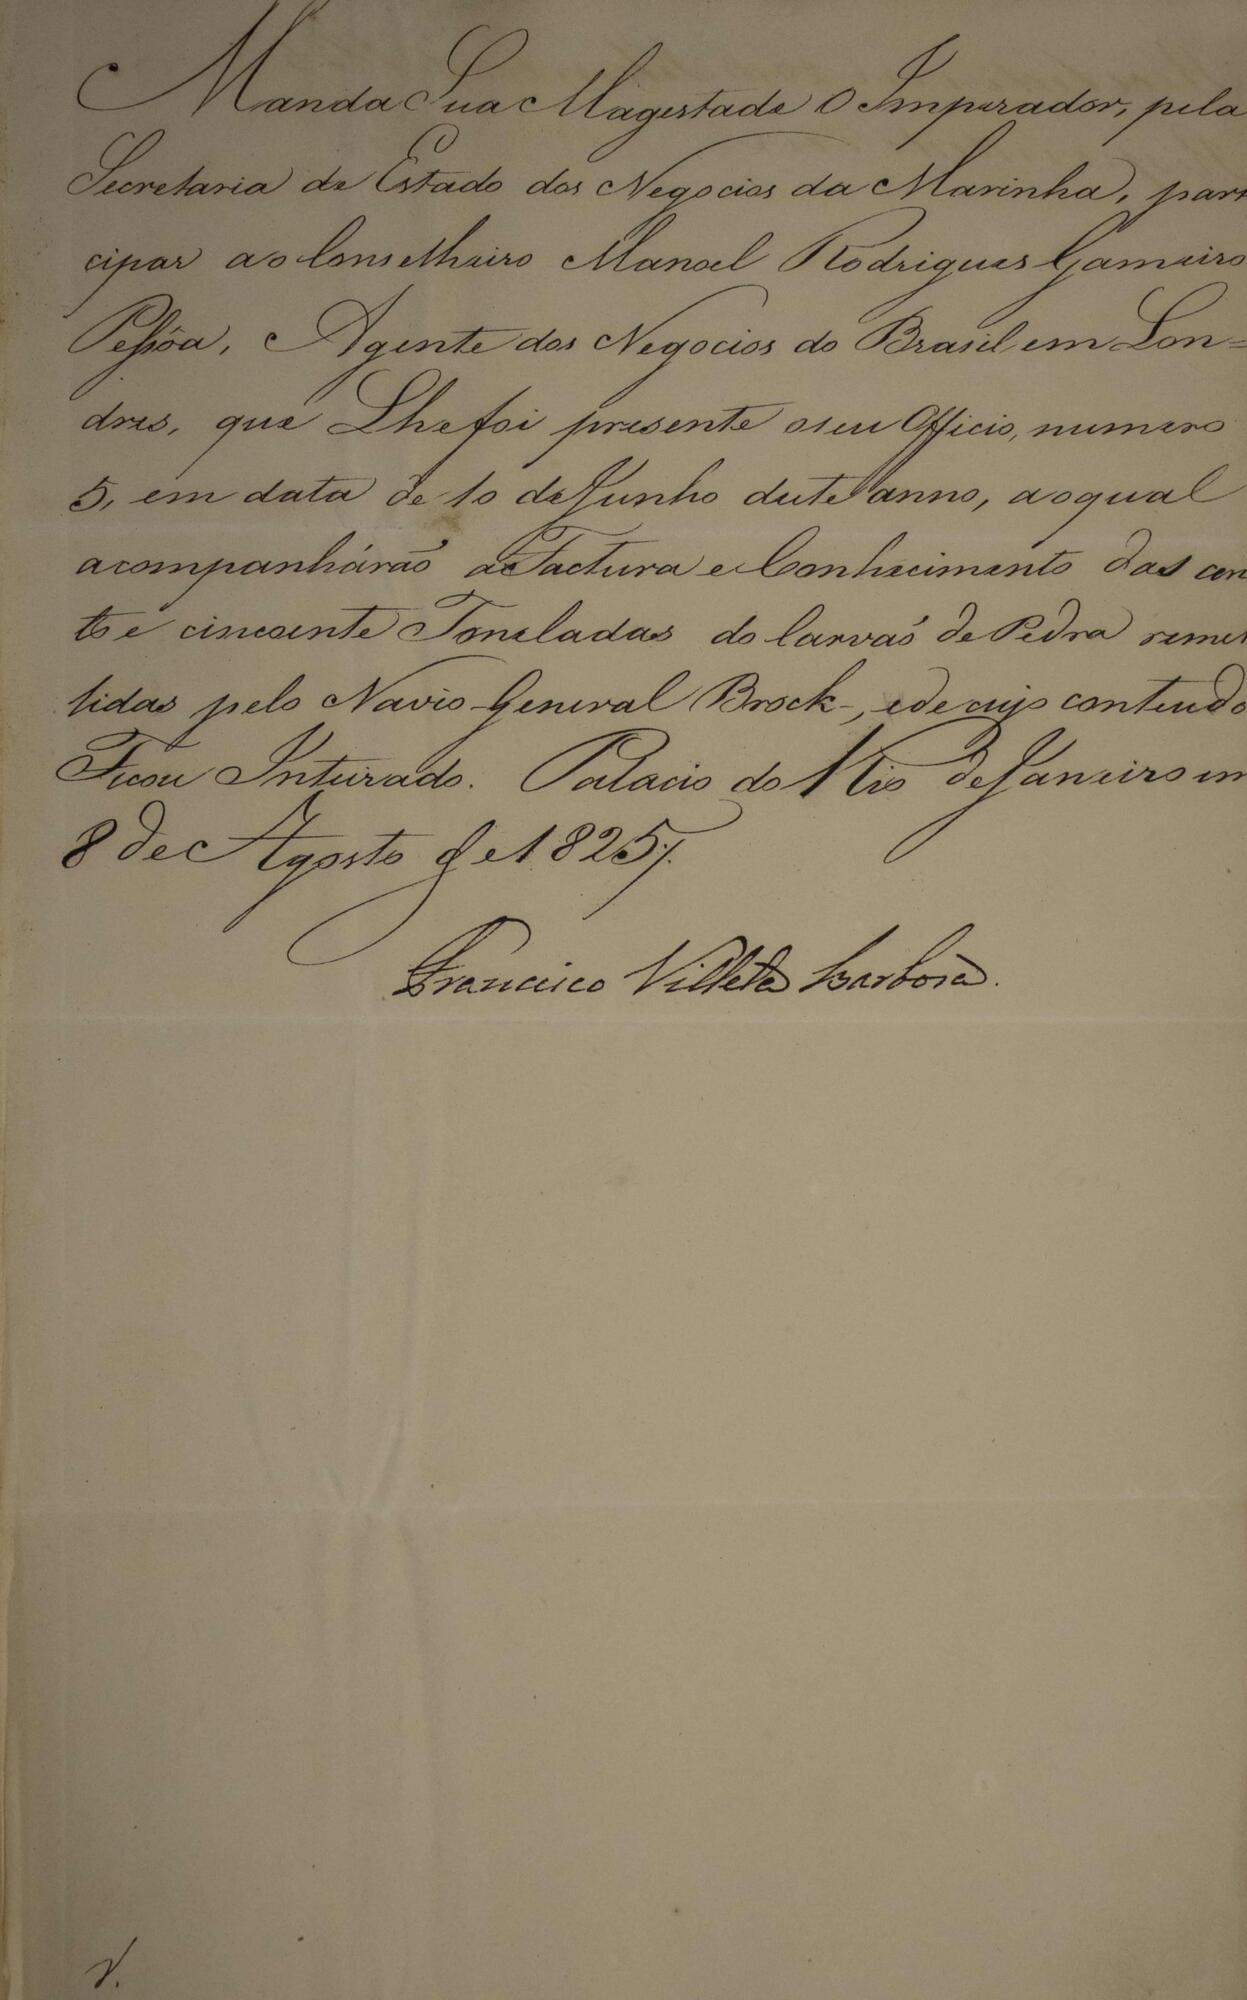 Manda Sua Magestade O Imperador, pela
Secretaria de Estado dos Negocios da Marinha, parti
cipar ao Conselheiro Manoel Rodrigues Gameiro
Pessôa, Agente dos Negocios do Brasil em Lon=
dres, que Lhe foi presente o seu Officio, numero
5, em data de 10 de Junho deste anno, ao qual
acompanhárão a Factura e Conhecimento das cen
to e cincoente Toneladas do Carvaõ de Pedra remet
tidas pelo Navio General Brock, e de cujo conteudo
Ficou Inteirado. Palacio do Rio de Janeiro em
8 de Agosto de 1825
Francisco Villela Barboza.